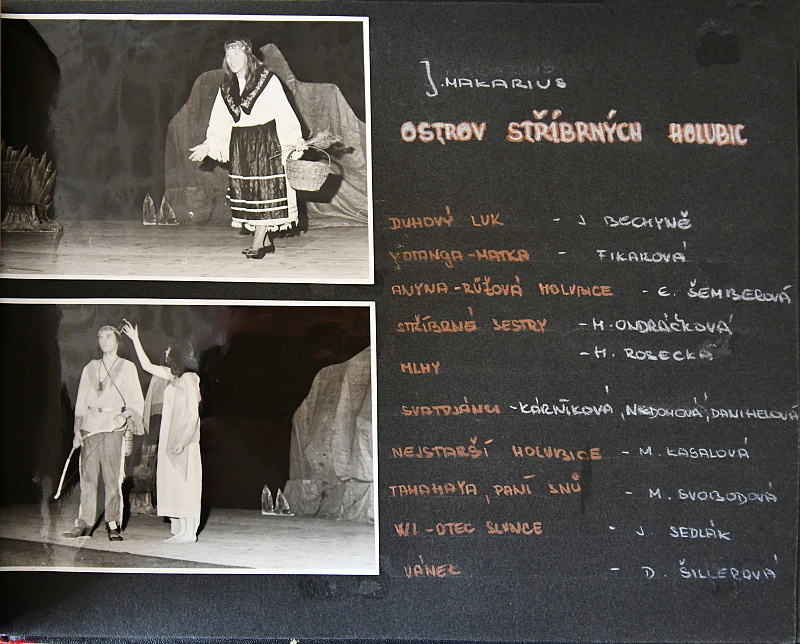 J. MAKARIUS
OSTROV STŘÍBRNÝCH HOLUBIC
DUHOVÝ LUK - J BECHYNĚ
YOTANGA-MATKA - FIKAROVÁ
ANYNA-RŮŽOVÁ HOLUBICE - E. ŠEMBEROVÁ
STŘÍBRNÉ SESTRY - H. ONDRÁČKOVÁ
- H. ROSECKÁ
MLHY
SVATOJÁNCI - KÁRNÍKOVÁ, NEDOHOVÁ, DANIHELOVÁ
NEJSTARŠÍ HOLUBICE - M. KASALOVÁ
TAHAHAYA, PANÍ SNŮ - M. SVOBODOVÁ
WI - OTEC SLUNCE - J SEDLÁK
VÁNEK - D. ŠILLEROVÁ